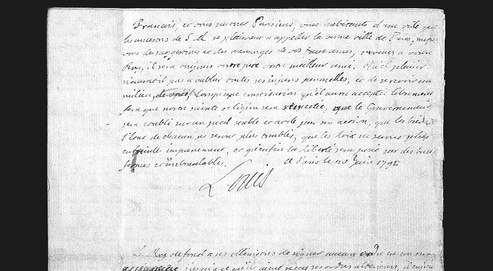 Français, et vous surtout Parisiens, vous habitants d'une ville que
les ancestres de S. M. se plaisoient a appeller la bonne ville de Paris, mefiez
vous des suggestions et des mensonges de vos faux amis, revenez a votre
Roy, il sera toujours votre pere, votre meilleur ami. Quel plaisir
n'aura-t-il pas a oublier toutes ses injures personnelles, et de se revoir au
milieu de vous lorsqu'une constitution qu'il aura acceptée librement
fera que notre sainte religion sera respectée, que le Gouvernement
sera etabli sur un pied stable et utile par son action, que les biens et
l'état de chacun ne seront plus troublés, que les loix ne seront plus
impunement, et qu'enfin la liberté sera posée sur des bases
fermes et inebranlables. A Paris le 20 Juin 1791
Louis
Le Roy defend a ses ministres de signer aucun ordre en son nom
jusqu'a ce qu'ils aient reçu ses ordres ulterieurs, il enjoint